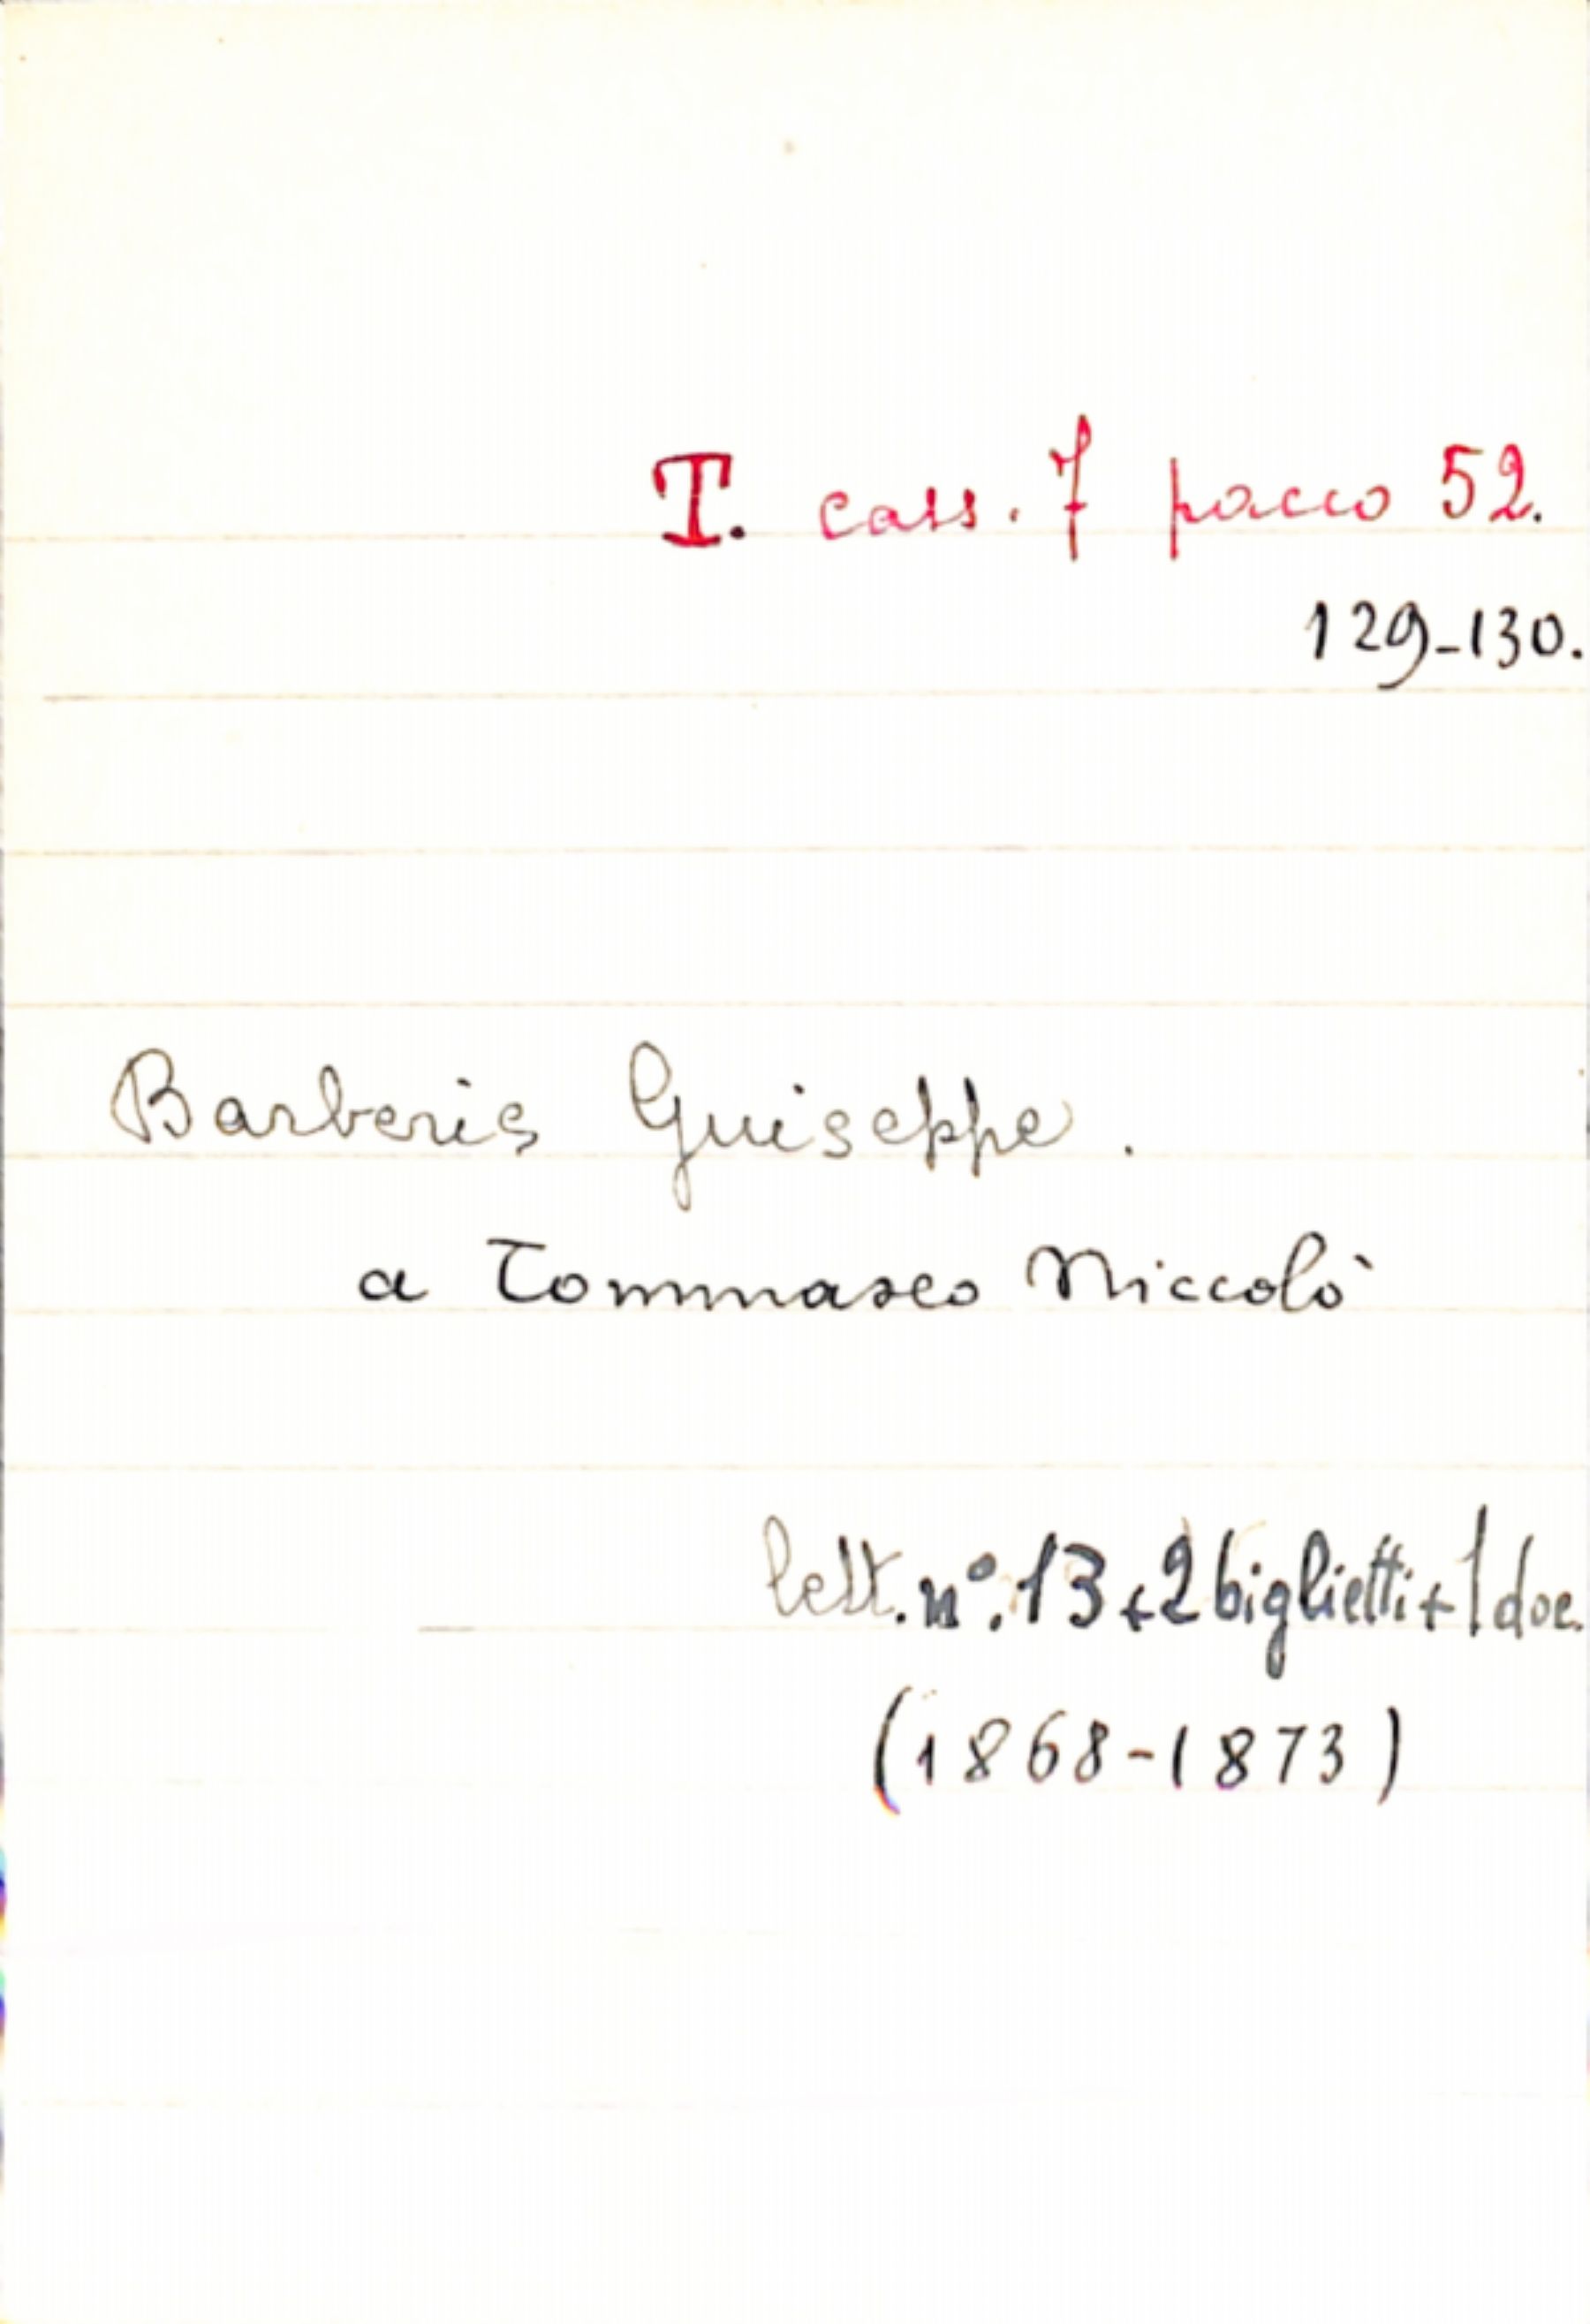 T. cass. 7 pacco 52.
129-130.
Barberis Guiseppe.
a Tommaseo Niccolò
lett. n°. 13 + 2 biglietti + 1 doc.
(1868-1873)